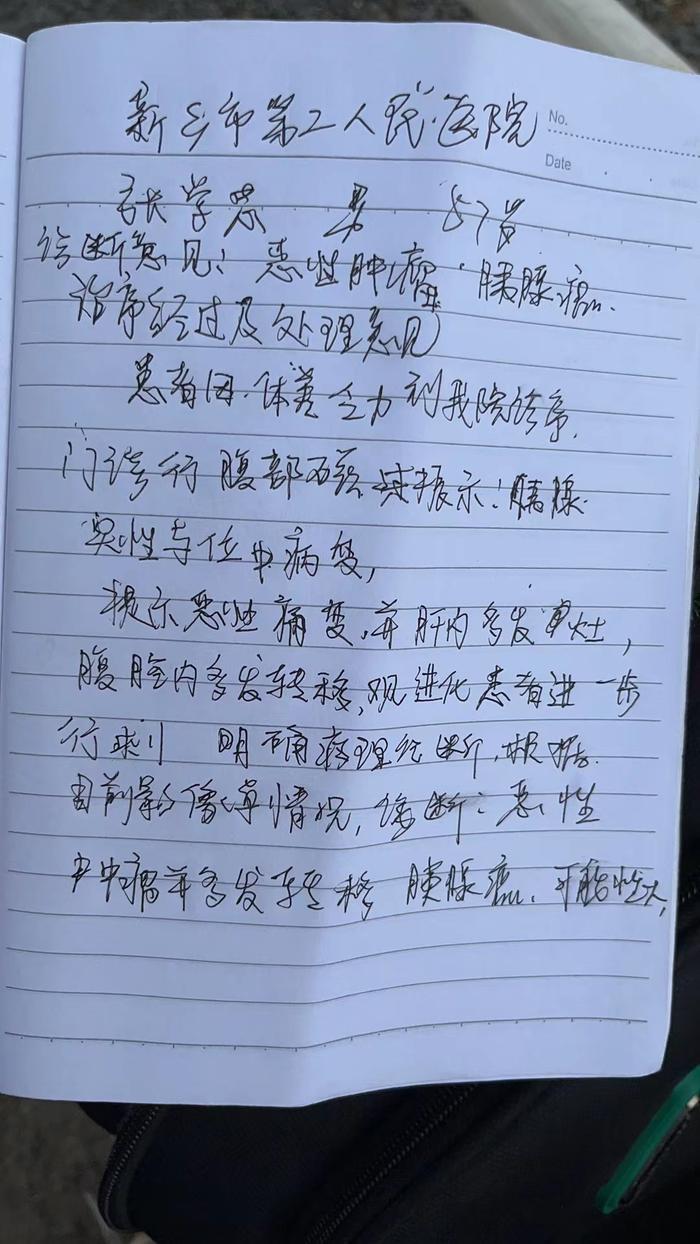 新乡市第二人民医院
No.
Date
张学恩 男 57岁
诊断意见：恶性肿瘤 胰腺癌.
治疗经过及处理意见
患者因.体差乏力到我院诊疗.
门诊行腹部 提示：胰腺
占位 病变,
提示恶性病变,并肝内多发 灶,
腹腔内多发转移, 患者进一步
行 明确病理诊断,根据
目前影像 情况,诊断：恶性
肿瘤并多发转移 胰腺癌.可能性大,